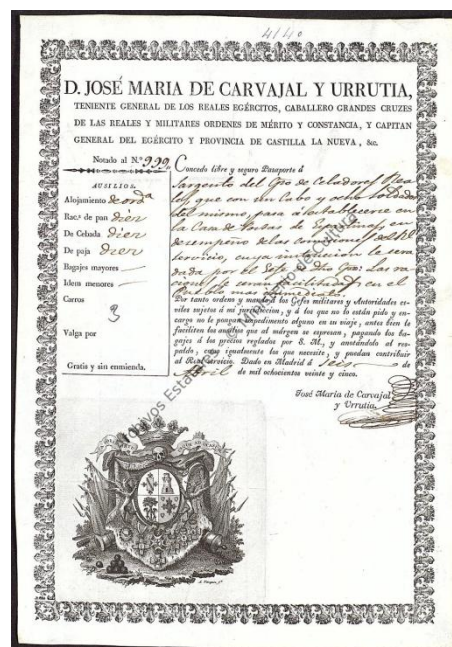 4140
D. JOSÉ MARIA DE CARVAJAL Y URRUTIA,
TENIENTE GENERAL DE LOS REALES EGÉRCITOS, CABALLERO GRANDES CRUZES
DE LAS REALES Y MILITARES ORDENES DE MÉRITO Y CONSTANCIA, Y CAPITAN
GENERAL DEL EGÉRCITO Y PROVINCIA DE CASTILLA LA NUEVA, &c.
Notado al N.º 999
AUSILIOS.
Alojamiento de ord.ª
Rac.s de pan diez
De Cebada diez
De paja diez
Bagajes mayores
Idem menores
Carros
3
Valga por
Gratis y sin enmienda.
Concedo libre y seguro Pasaporte á
Sargento del de Celadores Rea
les, que con un Cabo y ocho soldados
del mismo, pasa á establecerse en
la Casa de Postas de en
desempeño de las comisiones del Rl
servicio, cuya instruccion le sera
dada por el Gefe de dho Las ra
ciones le seran facilitadas en el
Pueblo mas inmediato.
Por tanto ordeno y mando á los Gefes militares y Autoridades ci-
viles sujetos á mi jurisdiccion, y á los que no lo están pido y en-
cargo no le pongan impedimento alguno en su viaje, antes bien le
faciliten los ausilios que al márgen se espresan, pagando los ba-
gajes á los precios reglados por S. M., y anotándolo al res-
paldo, como igualmente los que necesite, y puedan contribuir
al Real servicio. Dado en Madrid á Seis de
Abril de mil ochocientos veinte y cinco.
José María de Carvajal
y Urrutia.